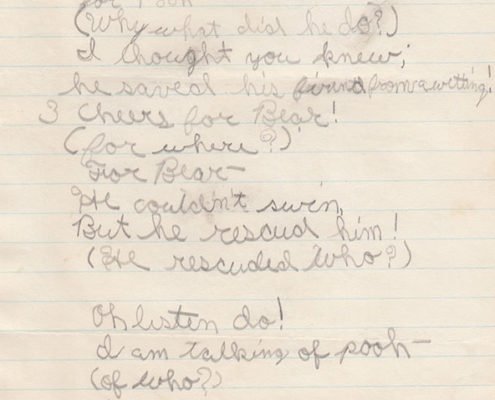 for Pooh
(Why what did he do?)
I thought you knew;
he saved his friend from a wetting!
3 Cheers for Bear!
(for where?)
For Bear—
He couldn't swim,
But he rescud him!
(He rescuded who?)
Oh listen do!
I am talking of pooh—
(of who?)